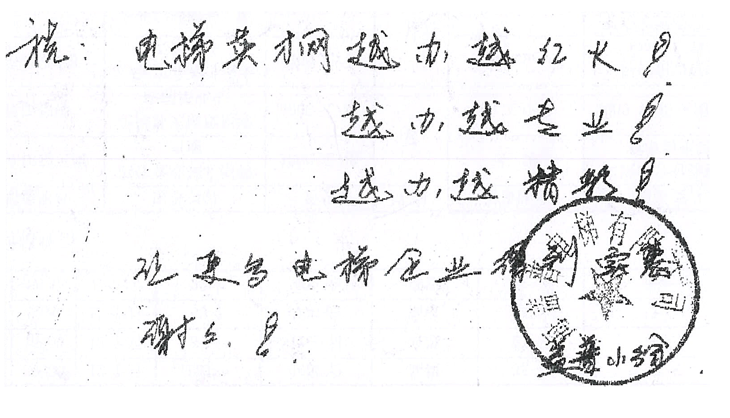 祝：电梯英才网越办越红火！
越办越专业！
越办越精彩！
让更多电梯企业得到实惠
谢谢！
电梯有限公司